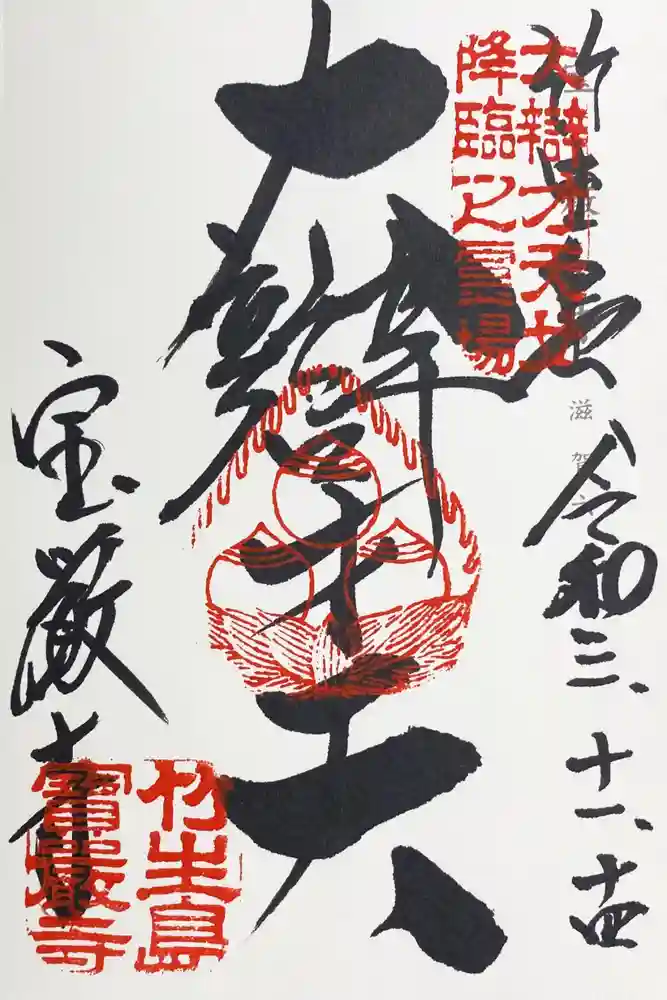 竹生島
令和三、十一、十四
大辯才天女
降臨之靈場
大辯才天
宝厳寺
竹生島
寳嚴寺
滋賀